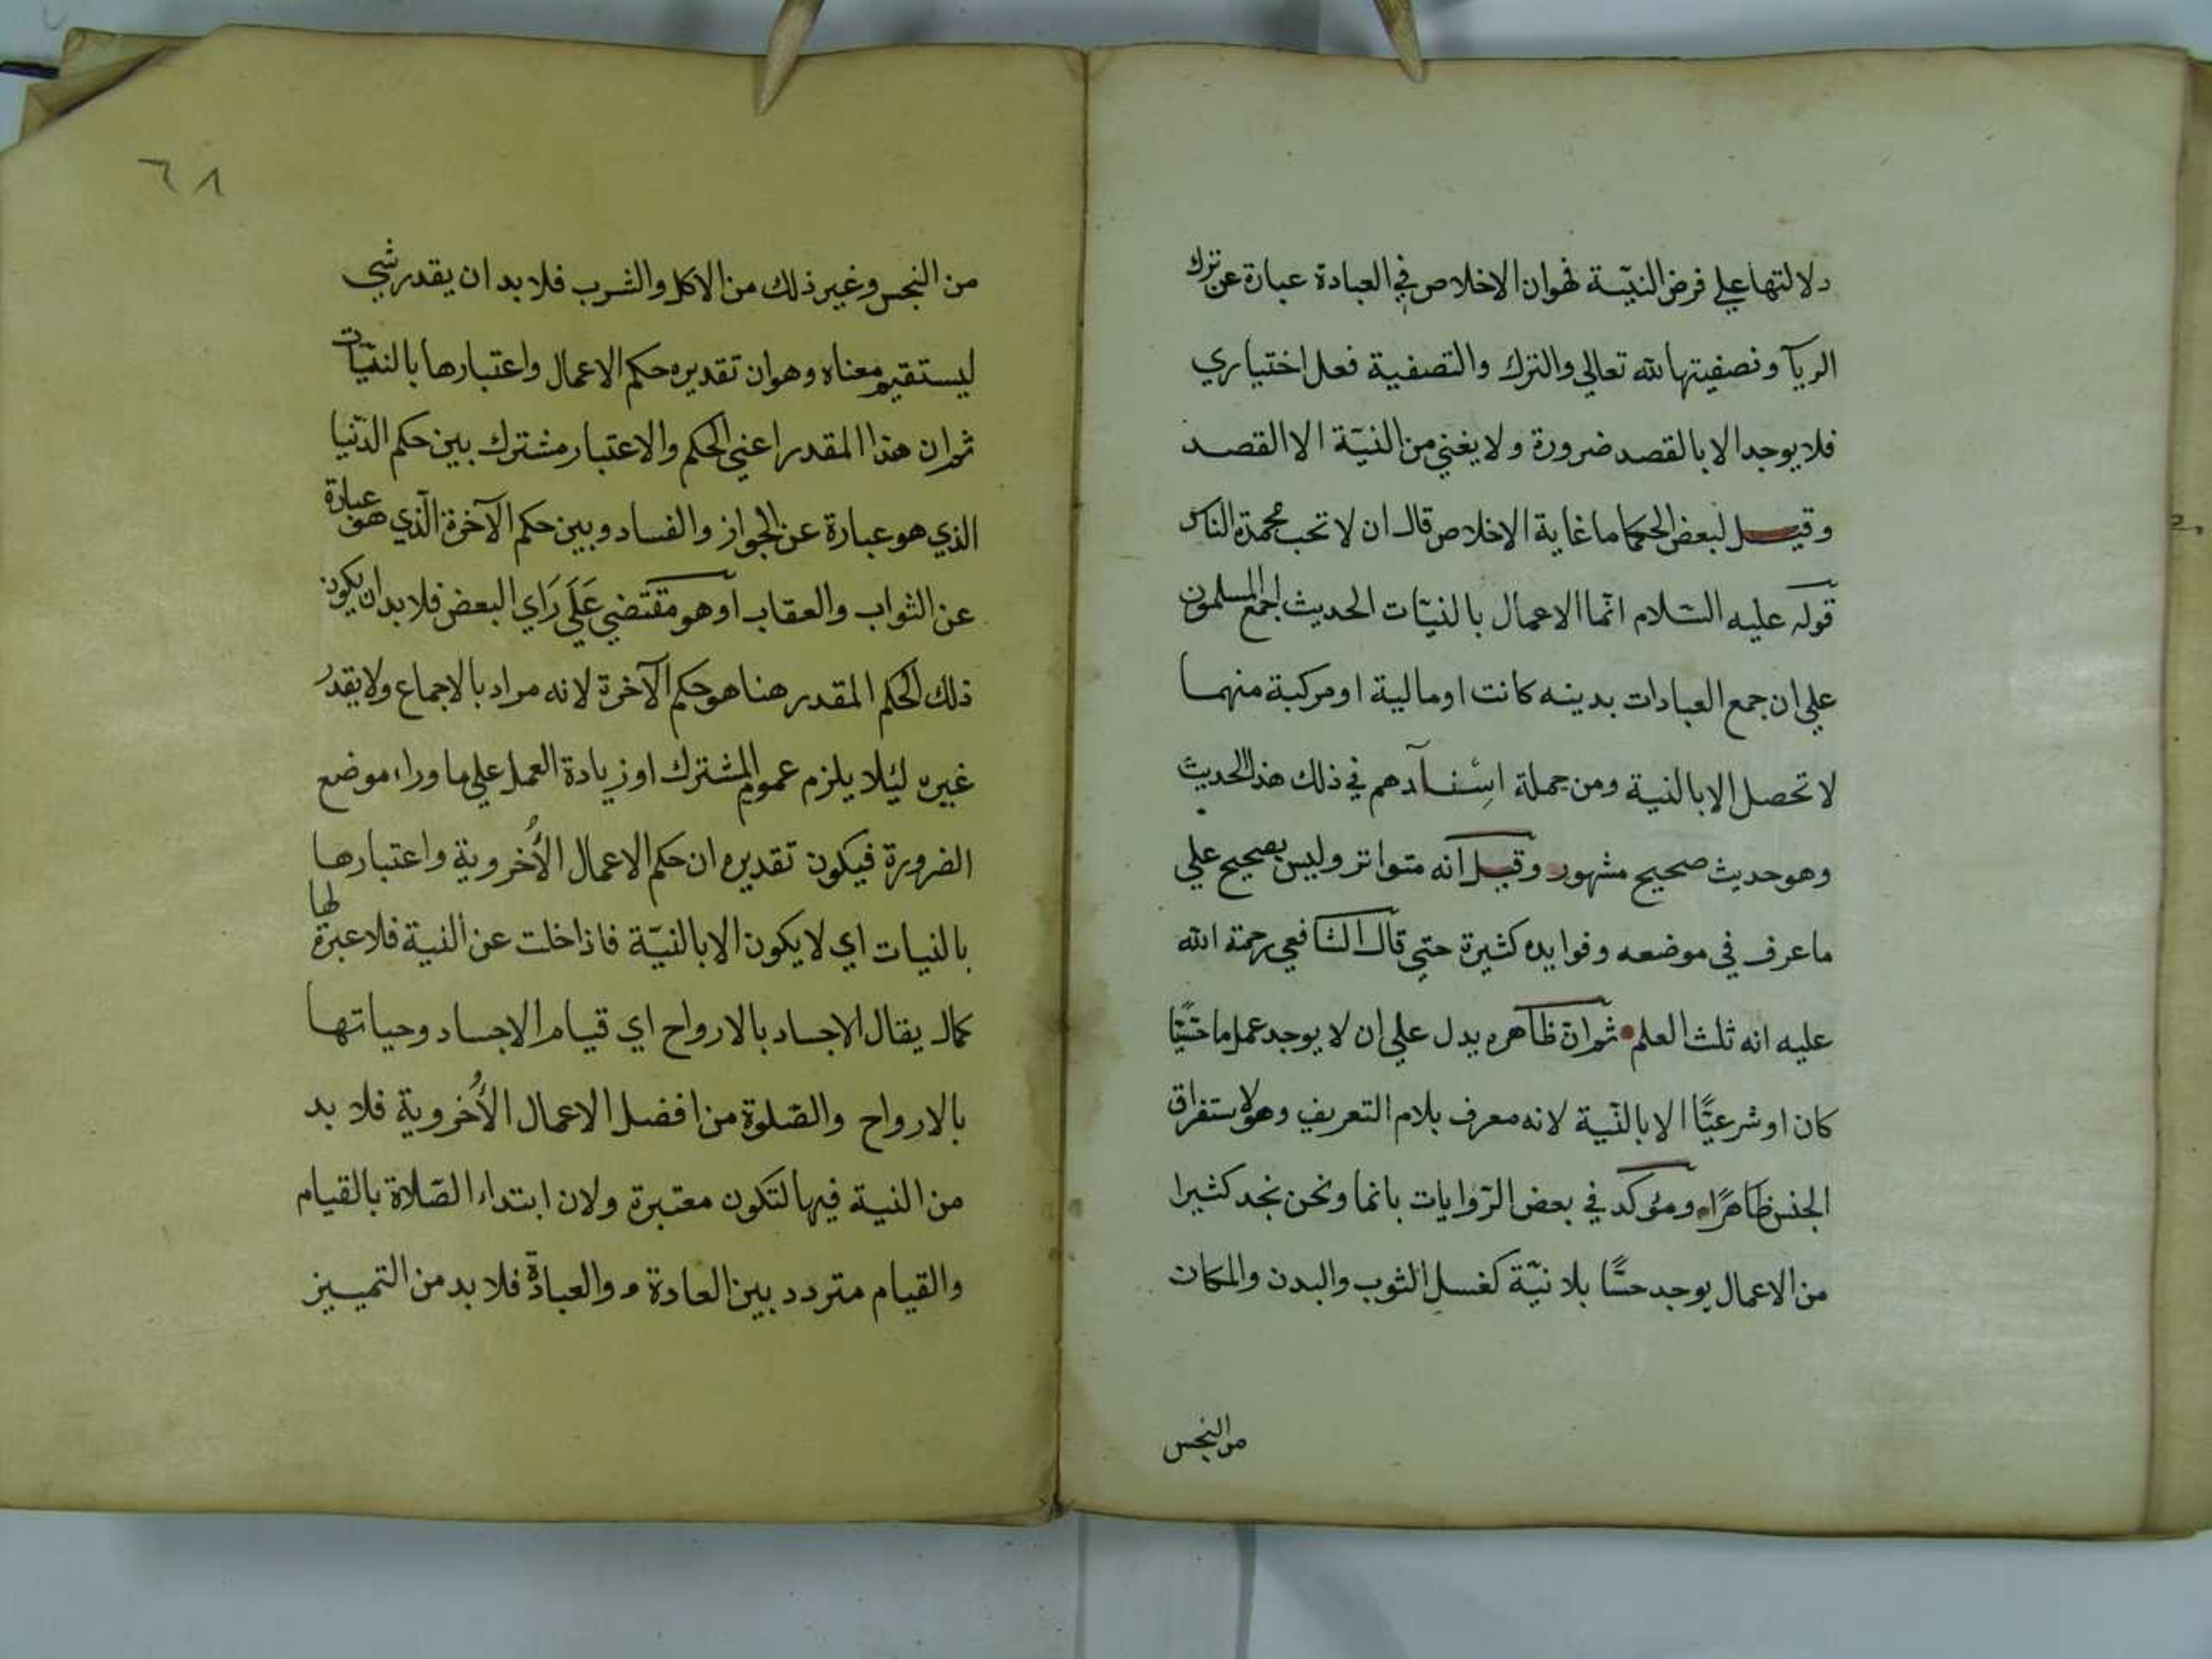 دلالتها علي فرض النيّة فهو ان الاخلاص في العبادة عبارة عن ترك
الريآ وتصفيتها لله تعالي والترك والتصفية فعل اختياري
فلا يوجد الا بالقصد ضرورة ولا يغني من النيّة الا القصد
وقيل لبعض الحكما ما غاية الاخلاص قال ان لا تحب محمدة الناس
قوله عليه السّلام انّما الاعمال بالنيّات الحديث اجمع المسلمون
علي ان جمع العبادات بدينه كانت او مالية او مركبة منهما
لا تحصل الا بالنية ومن جملة اسنآدهم في ذلك هذا الحديث
وهو حديث صحيح مشهور وقيل انه متواتر وليس بصحيح علي
ما عرف في موضعه وفوايده كثيرة حتي قال الشافعي رحمة الله
عليه انه ثلث العلم ثم ان ظاهره يدل علي ان لا يوجد عمل ما حسّيًا
كان او شرعيًّا الا بالنّية لانه معرف بلام التعريف وهو لاستغراق
الجنس ظاهرًا ومؤكد في بعض الرّوايات بانما ونحن نجد كثيرا
من الاعمال يوجد حسًّا بلا نيّة كغسل الثوب والبدن والمكان
من النجس
٦٨
من النجس وغير ذلك من الاكل والشرب فلا بد ان يقدر شي
ليستقيم معناه وهو ان تقديره حكم الاعمال واعتبارها بالنيّات
ثم ان هذا المقدر اعني الحكم والاعتبار مشترك بين حكم الدّنيا
الذي هو عبارة عن الجواز والفساد وبين حكم الآخرة الّذي هو عبارة
عن الثواب والعقاب او هو مقتضي عَلَي رَاي البعض فلا بد ان يكون
ذلك الحكم المقدر هنا هو حكم الآخرة لانه مراد بالاجماع ولا يقدر
غيره ليئلا يلزم عموم المشترك او زيادة العمل علي ما وراء موضع
الضرورة فيكون تقديره ان حكم الاعمال الأُخروية واعتبارها
بالنيات اي لا يكون الا بالنيّة فاذا خلت عن النية فلا عبرة لها
كما يقال الاجساد بالارواح اي قيام الاجساد وحياتها
بالارواح والصّلوة من افضل الاعمال الأُخروية فلا بد
من النية فيها لتكون معتبرة ولان ابتداء الصّلاة بالقيام
والقيام متردد بين العادة والعبادة فلا بد من التمييز